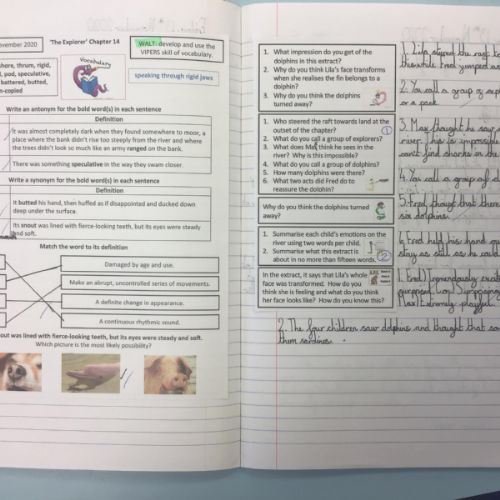 ovember 2020
'The Explorer' Chapter 14
WALT: develop and use the VIPERS skill of vocabulary.
hore, thrum, rigid,
l, pod, speculative,
battered, butted,
n-copied
Vocabulary
speaking through rigid jaws
Write an antonym for the bold word(s) in each sentence
Definition
It was almost completely dark when they found somewhere to moor, a
place where the bank didn't rise too steeply from the river and where
the trees didn't look so much like an army ranged on the bank.
There was something speculative in the way they swam closer.
Write a synonym for the bold word(s) in each sentence
Definition
It butted his hand, then huffed as if disappointed and ducked down
deep under the surface.
Its snout was lined with fierce-looking teeth, but its eyes were steady
and soft.
Match the word to its definition
Damaged by age and use.
Make an abrupt, uncontrolled series of movements.
A definite change in appearance.
A continuous rhythmic sound.
nout was lined with fierce-looking teeth, but its eyes were steady and soft.
Which picture is the most likely possibility?
1. What impression do you get of the
dolphins in this extract?
2. Why do you think Lila's face transforms
when she realises the fin belongs to a
dolphin?
3. Why do you think the dolphins
turned away?
1. Who steered the raft towards land at the
outset of the chapter?
2. What do you call a group of explorers?
3. What does Max think he sees in the
river? Why is this impossible?
4. What do you call a group of dolphins?
5. How many dolphins were there?
6. What two acts did Fred do to
reassure the dolphin?
Why do you think the dolphins turned
away?
1. Summarise each child's emotions on the
river using two words per child.
2. Summarise what this extract is
about in no more than fifteen words.
In the extract, it says that Lila's whole
face was transformed. How do you
think she is feeling and what do you think
her face looks like? How do you know this?
1. Lila steered the raft
thewhile Fred jumped
2. You call a group of
or a pack.
3. Max thought he say
river, this is impossible
can't find sharks in the
4. You call a group of d
5. Fred though that there
six dolphins.
6. Fred held his hand
stay as still as he could
1. Fred) Tremendously
Max) Extremely playful
2. The four children saw dolphins and thought that
them sardines.